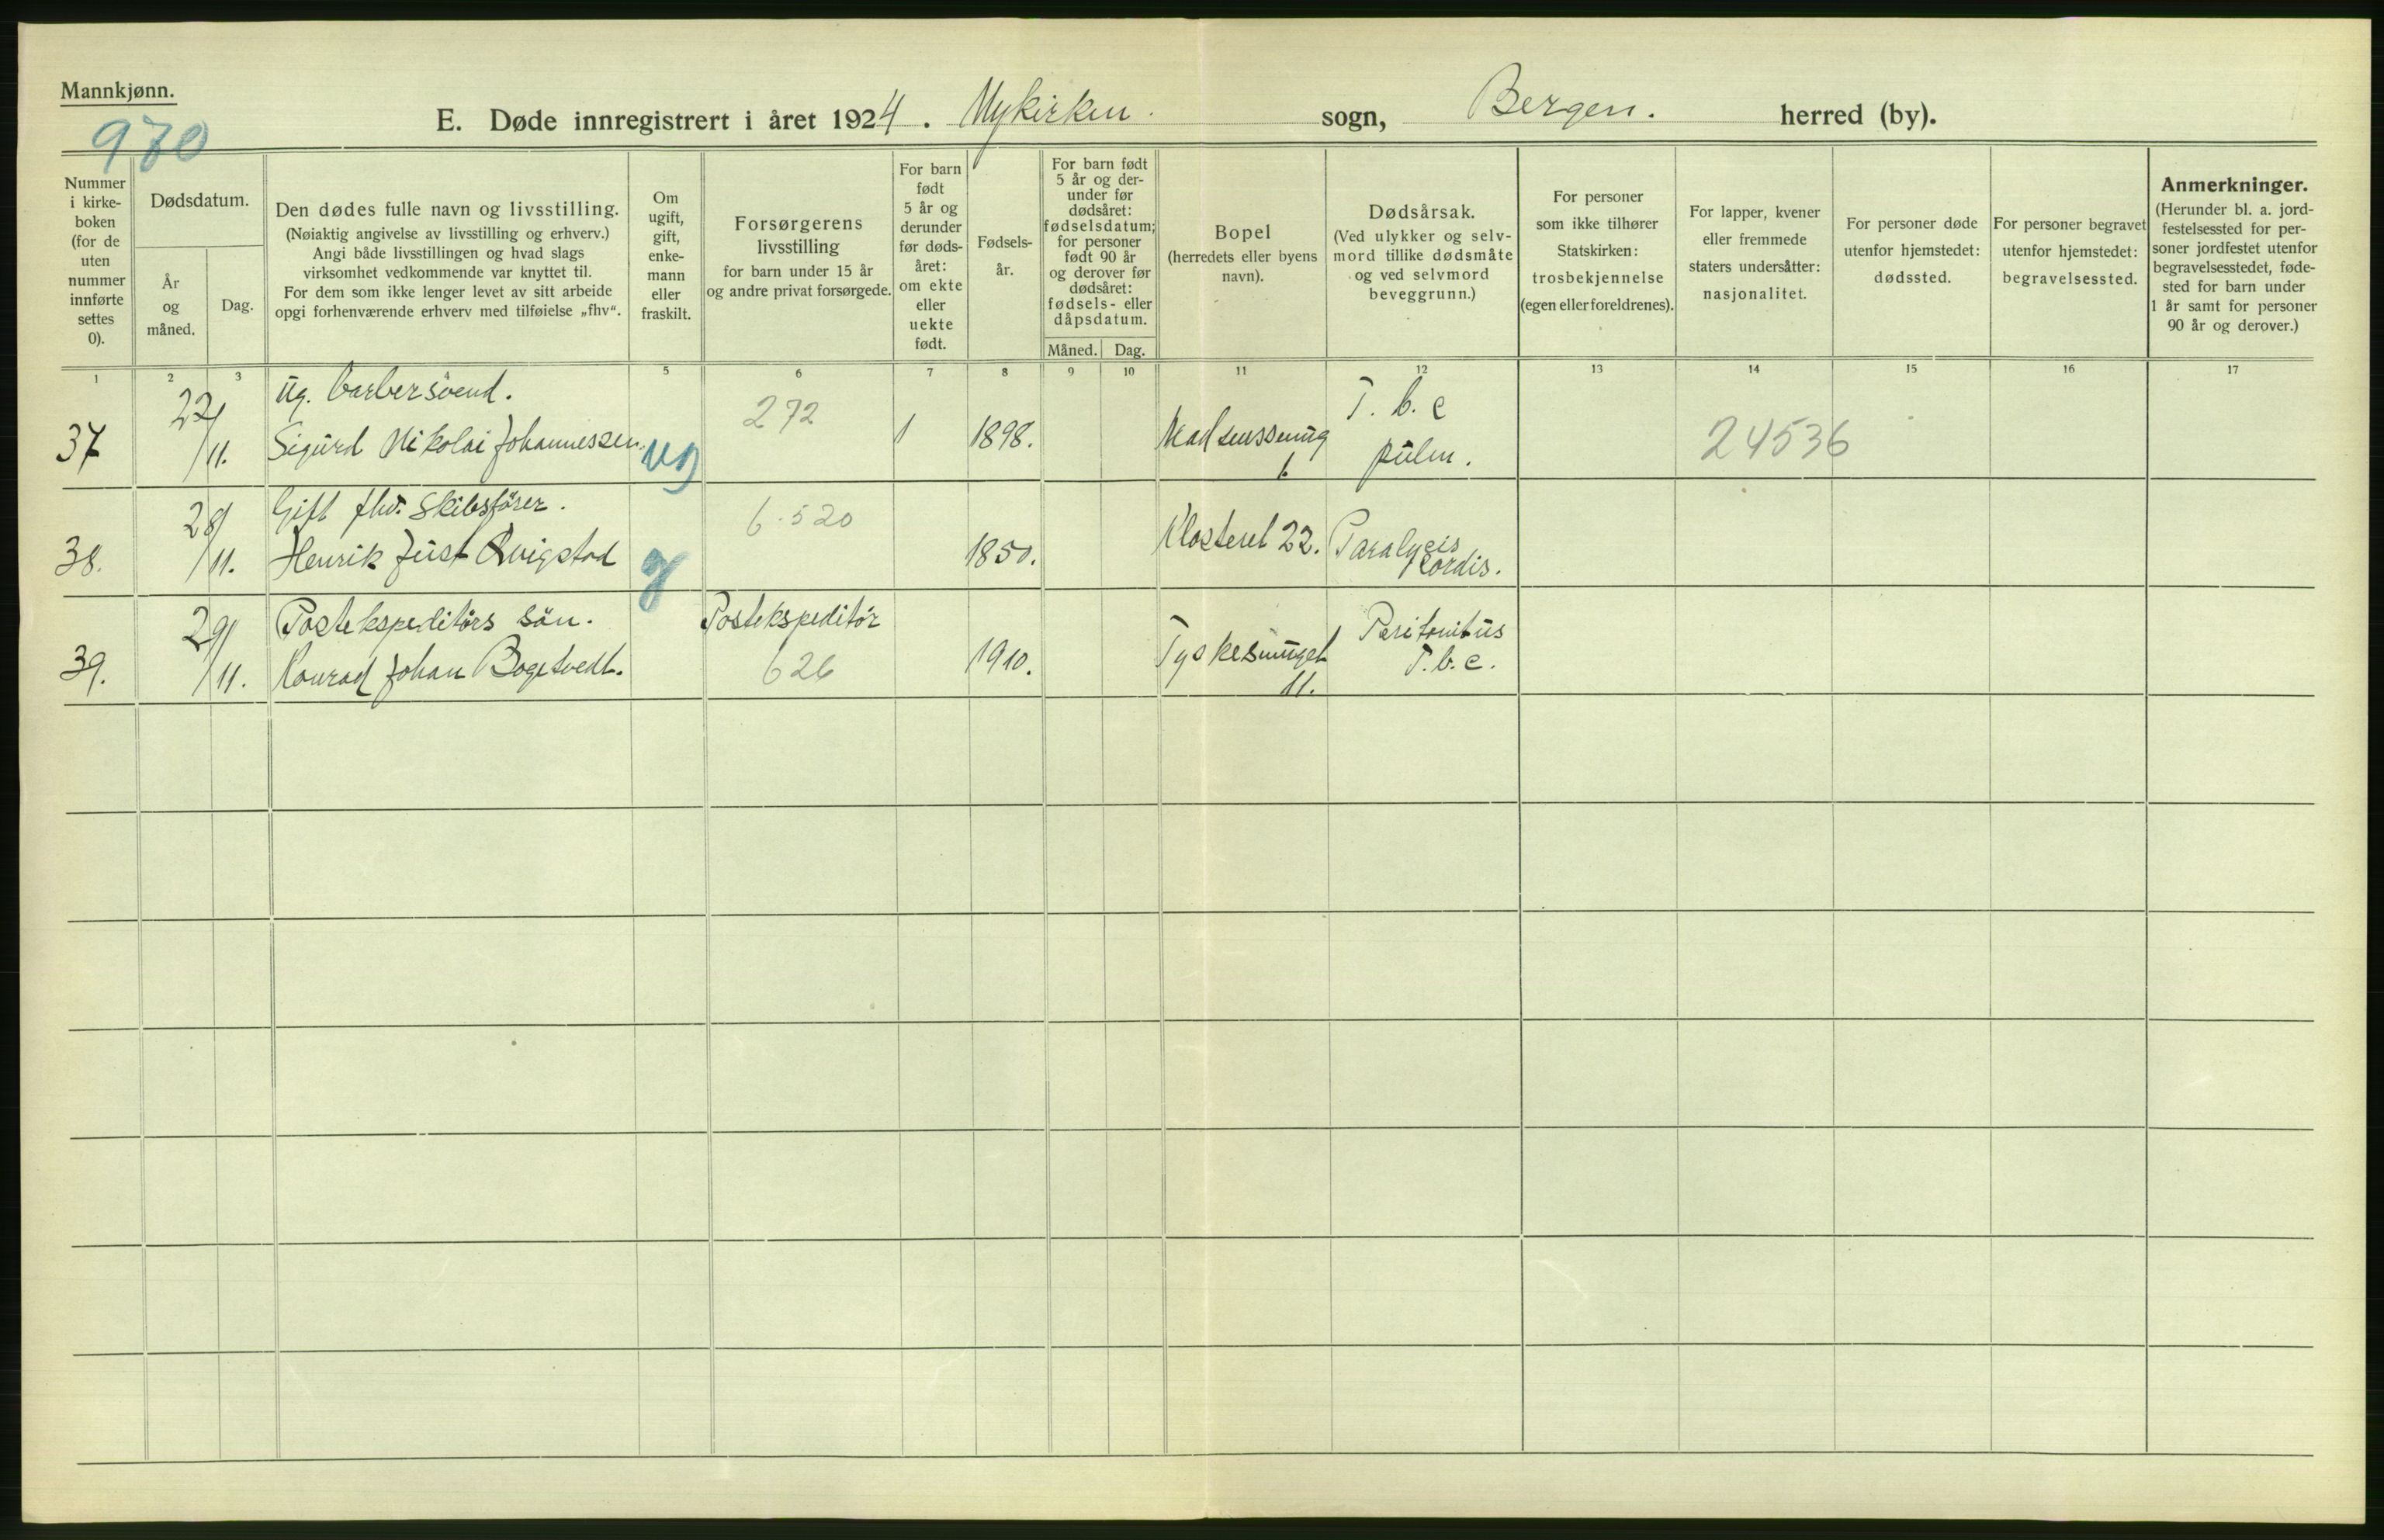 Mannkjønn.
970
E. Døde innregistrert i året 1924. Nykirken. sogn, Bergen. herred (by).
Nummer
i kirke-
boken
(for de
uten
nummer
innførte
settes
0).
Dødsdatum.
År
og
måned.
Dag.
Den dødes fulle navn og livsstilling.
(Nøiaktig angivelse av livsstilling og erhverv.)
Angi både livsstillingen og hvad slags
virksomhet vedkommende var knyttet til.
For dem som ikke lenger levet av sitt arbeide
opgi forhenværende erhverv med tilføielse „fhv“.
Om
ugift,
gift,
enke-
mann
eller
fraskilt.
Forsørgerens
livsstilling
for barn under 15 år
og andre privat forsørgede.
For barn
født
5 år og
derunder
før døds-
året:
om ekte
eller
uekte
født.
Fødsels-
år.
For barn født
5 år og der-
under før
dødsåret:
fødselsdatum;
for personer
født 90 år
og derover før
dødsåret:
fødsels- eller
dåpsdatum.
Måned. Dag.
Bopel
(herredets eller byens
navn).
Dødsårsak.
(Ved ulykker og selv-
mord tillike dødsmåte
og ved selvmord
beveggrunn.)
For personer
som ikke tilhører
Statskirken:
trosbekjennelse
(egen eller foreldrenes).
For lapper, kvener
eller fremmede
staters undersåtter:
nasjonalitet.
For personer døde
utenfor hjemstedet:
dødssted.
For personer begravet
utenfor hjemstedet:
begravelsessted.
Anmerkninger.
(Herunder bl. a. jord-
festelsessted for per-
soner jordfestet utenfor
begravelsesstedet, føde-
sted for barn under
1 år samt for personer
90 år og derover.)
1 2 3 5 6 7 8 9 10 11 12 13 14 15 16 17
37
22/11.
Ug. barbersvend.
Sigurd Nikolai Johannessen.
ug
272
1
1898.
Madsenssmug
1.
T. b. c
pulm.
24536
38.
28/11.
Gift fhv. Skibsfører.
Henrik Just Qvigstad
g
6.520
1850.
Klosteret 22.
Paralysis
cordis.
39.
29/11.
Postekspeditørs søn.
Konrad Johan Bogetvedt.
Postekspeditør
626
1910.
Tyskesmuget
11.
Peritonitus
T.b.c.